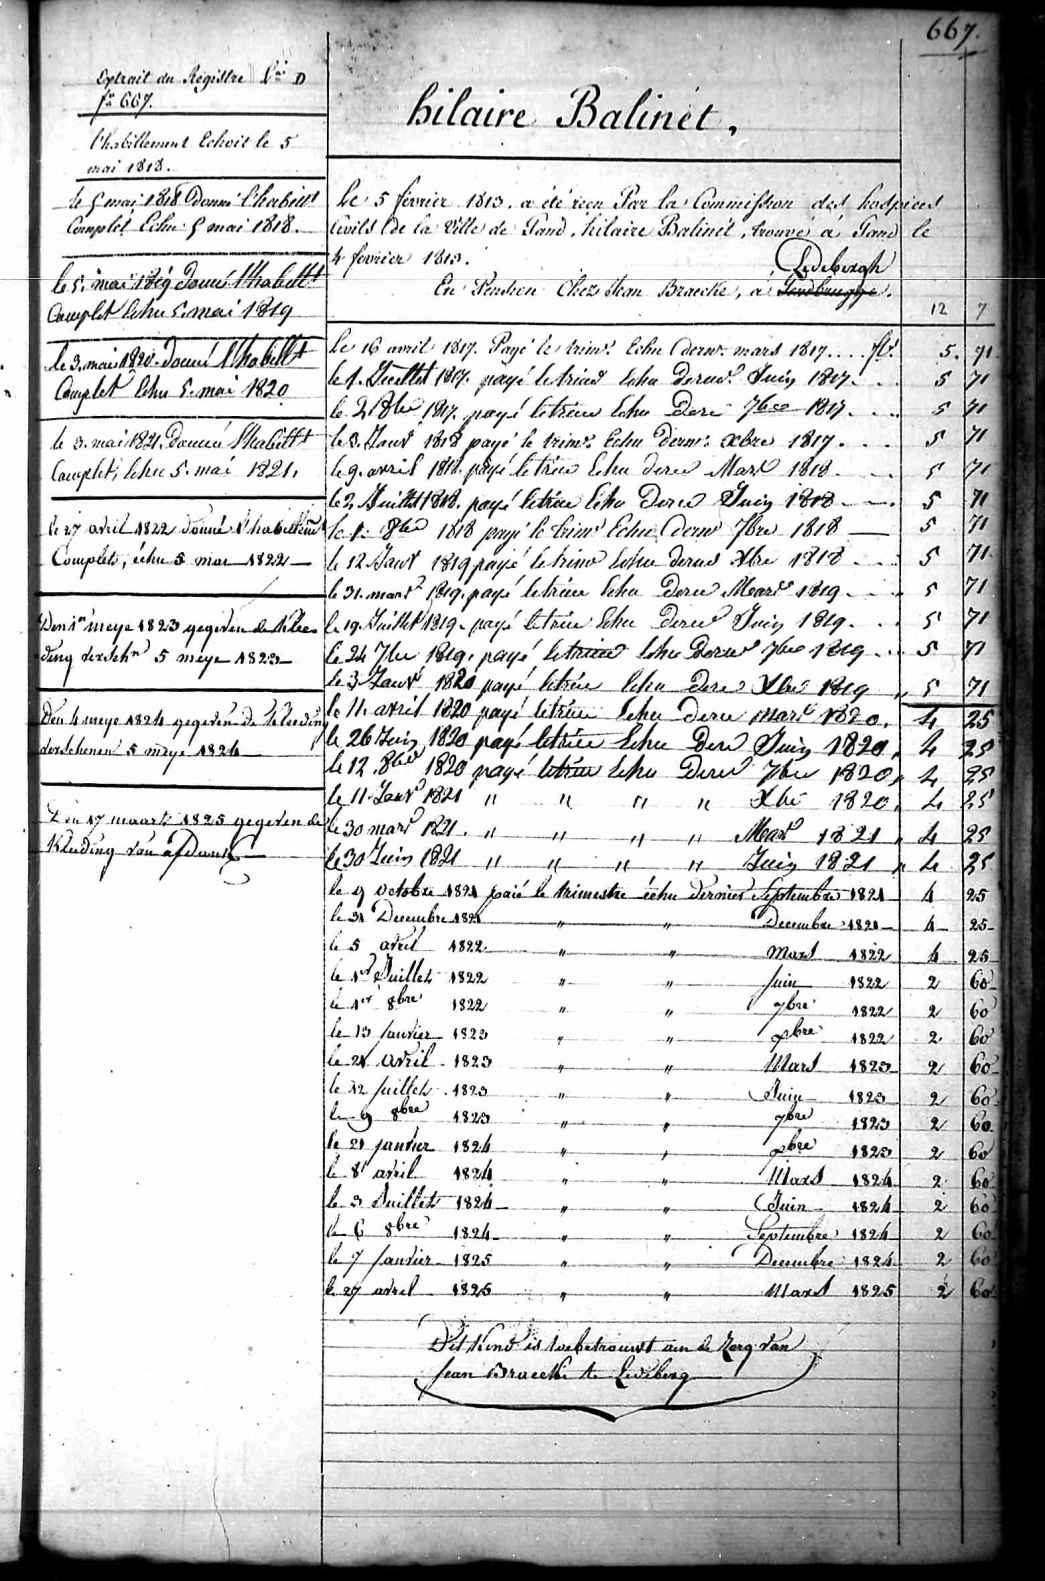 667.
Extrait du Registre Lrē D
fo 667.
l'habillement Echoit le 5
mai 1818.
le 5 mai 1818 Donné l'habillt
Complét Echu 5 mai 1818.
le 5. mai 1819 donné l'habillt
Complet Echu 5. mai 1819
le 3. mai 1820. donné l'habillt
Complet Echu 5. mai 1820
le 3. mai 1821. donné l'habillt
Complet, Echu 5. mai 1821.
le 27 avril 1822 donné l'habillem
Complets, échu 5 mai 1822
Den 1n meye 1823 gegeven de Klee
ding verschn 5 meye 1823
Den 4 meye 1824 gegeven de kleeding
verschenen 5 meye 1824
Den 17 maart 1825 gegeven de
Kleeding van afdank
hilaire Balinét.
Le 5 février 1813. a été reçu Par la Commission des hospices
Civils de la Ville de Gand, hilaire Balinét, trouvé à Gand le
4 fevrier 1813.
Ledebergh
En Pension Chez Jean Braecke, à Gendbrugge.
12 7
le 16 avril 1817. Payé le trimr. Echu dernr. mars 1817.... fl. 5. 71
le 1. Juillet 1817. payé le trimr Echu dernr. Juin 1817. . . 5 71
le 2. 8bre 1817. payé letrim Echu dern 7bre 1817. . . . 5 71
le 3. Janv 1818 payé le trimr. Echu dernr. xbre 1817. . . . 5 71
le 9. avril 1818. payé letrim Echu dern Mars 1818. . . 5 71
le 2. Juillet 1818. payé letrim Echu Dern Juin 1818 5 71
le 1. 8bre 1818 payé le trimr Echu dernr 7bre 1818 5 71
le 12 Janv 1819 payé letrimr Echu dernr Xbre 1818 . . . 5 71
le 31. mars 1819. payé letrim Echu Dern Mars 1819 . . . 5 71
le 19. Juillet 1819. payé letrim Echu Dern Juin 1819. . . 5 71
le 24 7bre 1819. payé letrim Echu Dern 7bre 1819 . . . 5 71
le 3 Janv 1820 payé letrim Echu Dern Xbre 1819 " 5 71
le 11. avril 1820 payé letrim Echu Dern mars 1820. 4 25
le 26 Juin 1820 payé letrim Echu Dern Juin 1820 " 4 25
le 12. 8bre 1820 payé letrim Echu Dern 7bre 1820 " 4 25
le 11. Janv 1821 " " " " Xbre 1820 " 4 25
le 30 mars 1821. " " " " Mars 1821 " 4 25
le 30 Juin 1821 " " " " Juin 1821 " 4 25
le 9 octobre 1821 paié le trimestre échu dernier Septembre 1821 4 25
le 31 Decembre 1821 " " Decembre 1821 4 25
le 5 avril 1822 " " Mars 1822 4 25
le 1er Juillet 1822 " " Juin 1822 2 60
le 1er 8bre 1822 " " 7bre 1822 2 60
le 13 Janvier 1823 " " xbre 1822 2 60
le 21 avril 1823 " " Mars 1823 2 60
le 12 Juillet 1823 " " Juin 1823 2 60
le 9 8bre 1823 " " 7bre 1823 2 60
le 21 janvier 1824 " " xbre 1823 2 60
le 8 avril 1824 " " Mars 1824 2 60
le 3 Juillet 1824 " " Juin 1824 2 60
le 6 8bre 1824 " " Septembre 1824 2 60
le 7 Janvier 1825 " " Decembre 1824 2 60
le 27 avril 1825 " " Mars 1825 2 60
Dit Kind is toebetrouwt aen de Zorg van
Jean Braecke te Ledeberg